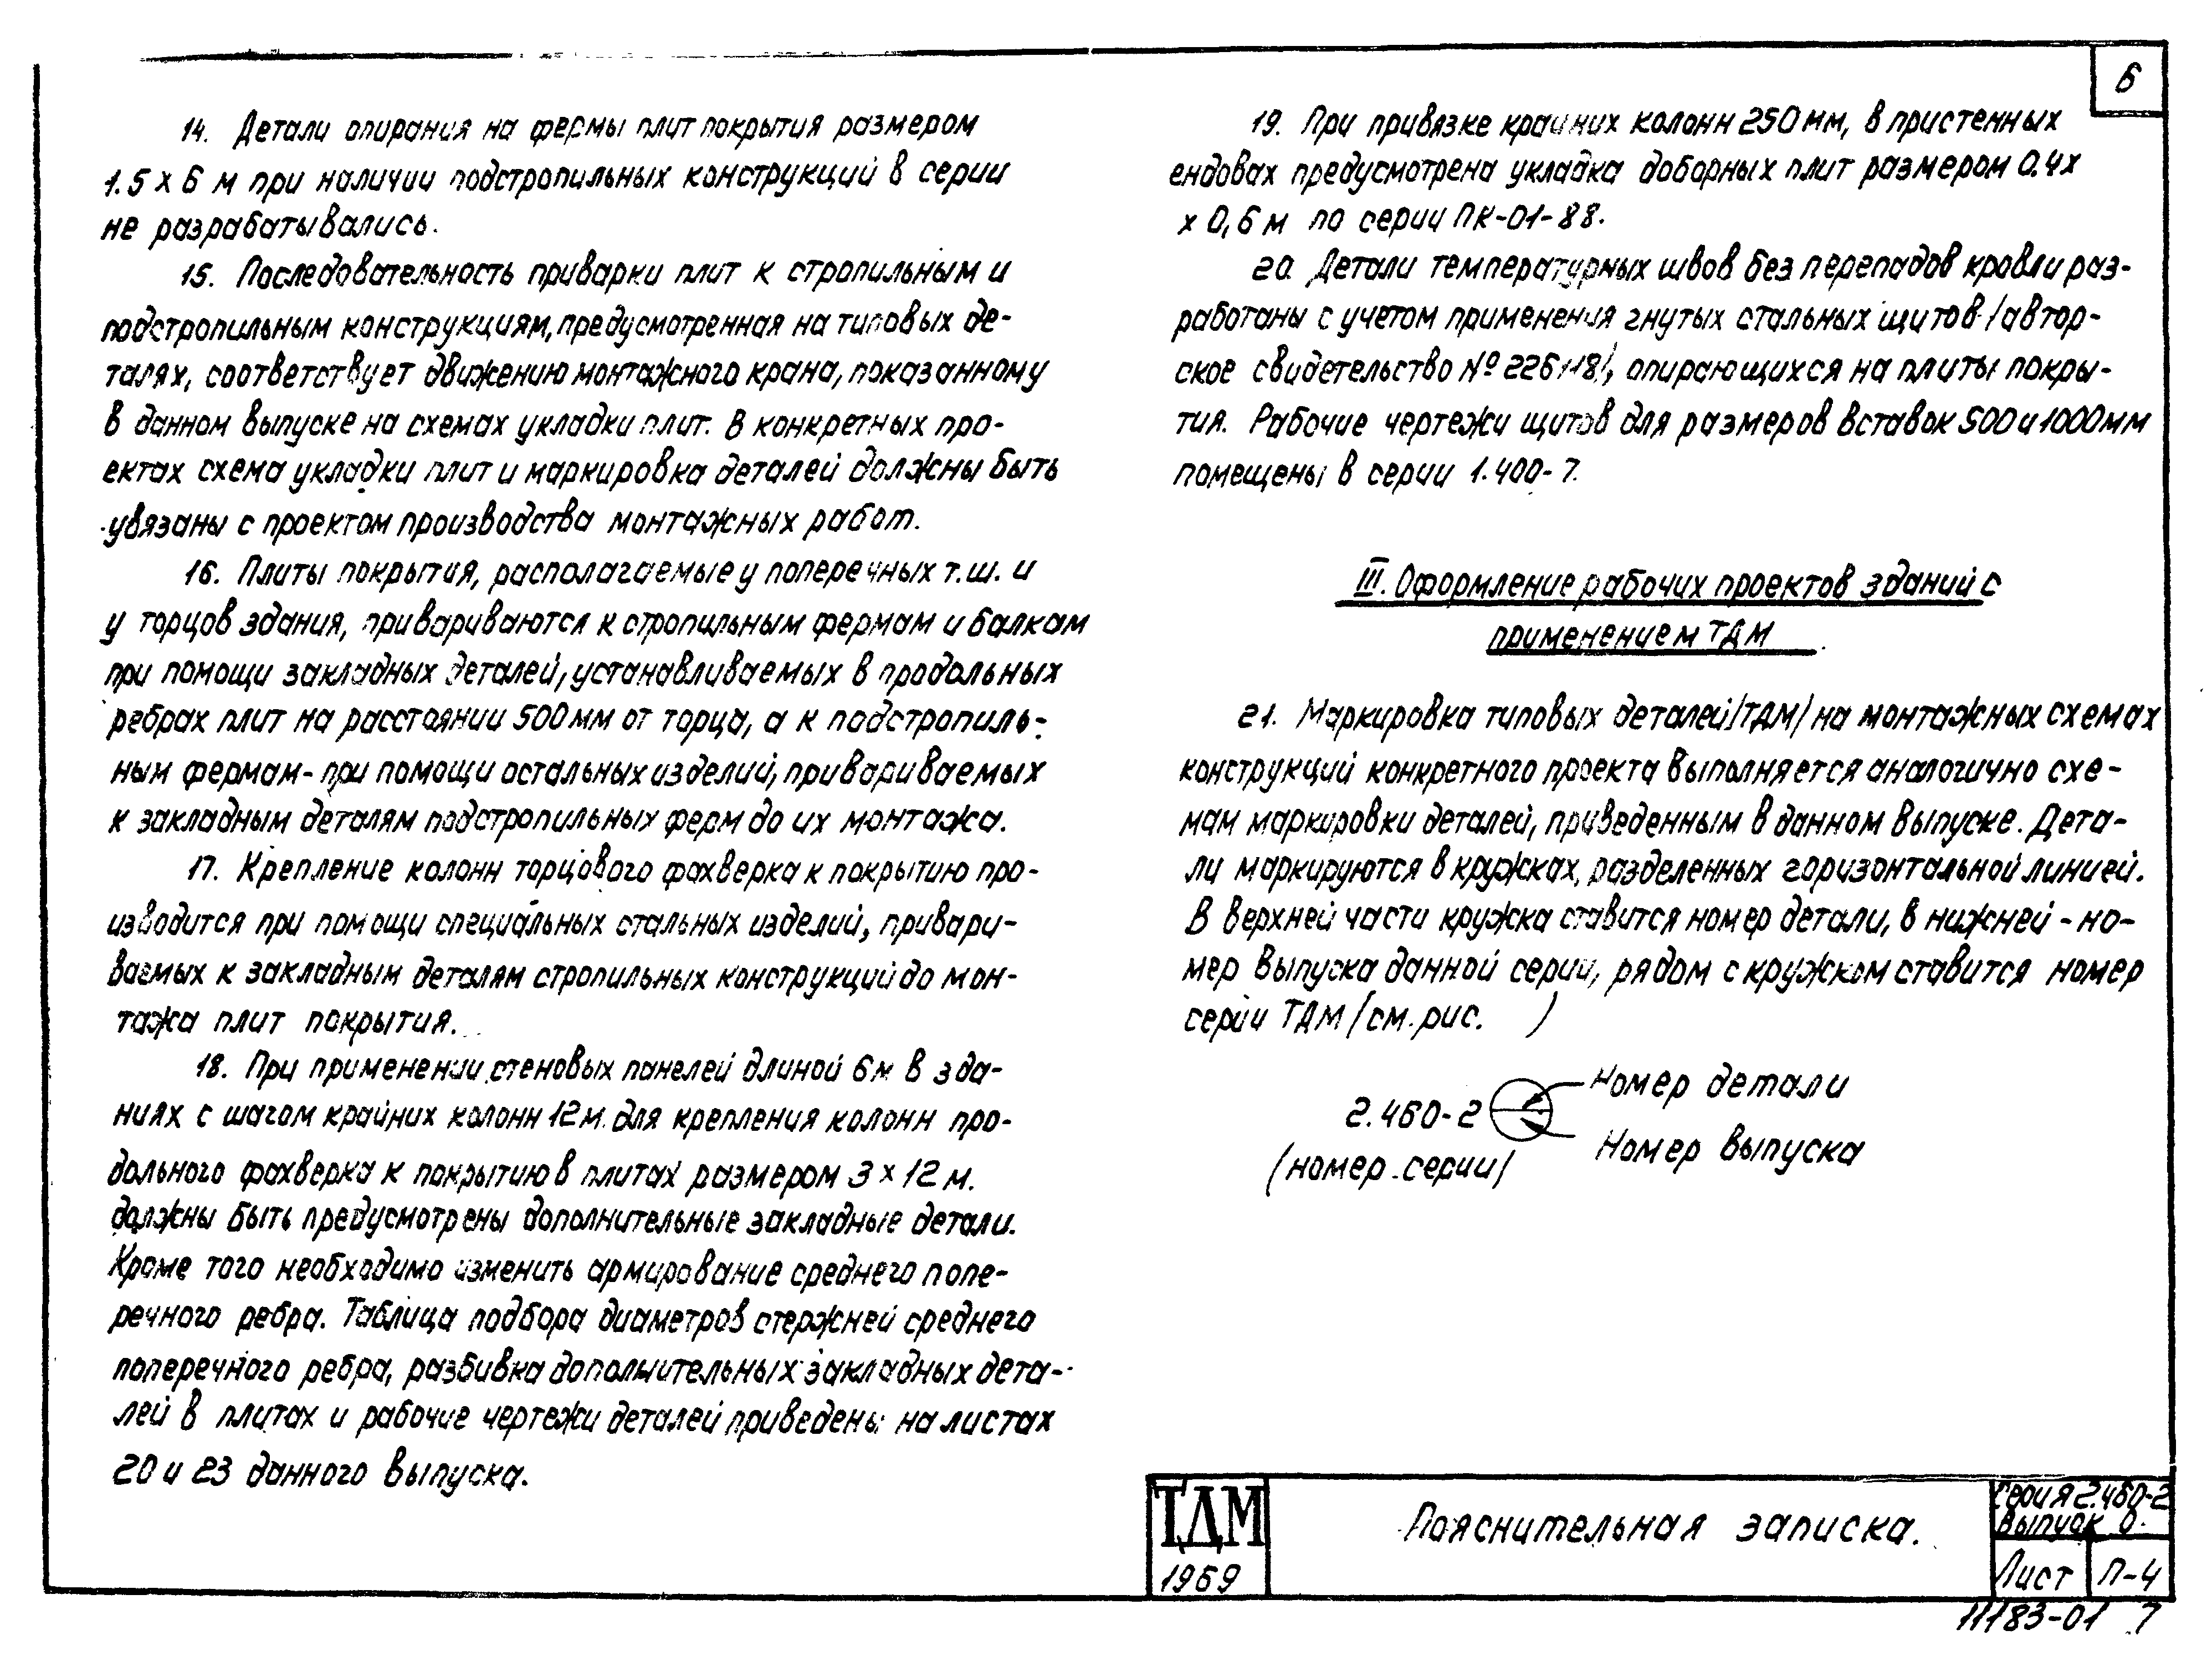 6
14. Детали опирания на фермы плит покрытия размером
1.5 х 6 м при наличии подстропильных конструкций в серии
не разрабатывались.
15. Последовательность приварки плит к стропильным и
подстропильным конструкциям, предусмотренная на типовых де-
талях, соответствует движению монтажного крана, показанному
в данном выпуске на схемах укладки плит. В конкретных про-
ектах схема укладки плит и маркировка деталей должны быть
увязаны с проектом производства монтажных работ.
16. Плиты покрытия, располагаемые у поперечных т.ш. и
у торцов здания, привариваются к стропильным фермам и балкам
при помощи закладных деталей, устанавливаемых в продольных
ребрах плит на расстоянии 500 мм от торца, а к подстропиль-
ным фермам - при помощи остальных изделий, привариваемых
к закладным деталям подстропильных ферм до их монтажа.
17. Крепление колонн торцового фахверка к покрытию про-
изводится при помощи специальных стальных изделий, привари-
ваемых к закладным деталям стропильных конструкций до мон-
тажа плит покрытия.
18. При применении стеновых панелей длиной 6 м в зда-
ниях с шагом крайних колонн 12 м. для крепления колонн про-
дольного фахверка к покрытию в плитах размером 3 х 12 м.
должны быть предусмотрены дополнительные закладные детали.
Кроме того необходимо изменить армирование среднего попе-
речного ребра. Таблица подбора диаметров стержней среднего
поперечного ребра, разбивка дополнительных закладных дета-
лей в плитах и рабочие чертежи деталей приведены на листах
20 и 23 данного выпуска.
19. При привязке крайних колонн 250 мм, в пристенных
ендовах предусмотрена укладка доборных плит размером 0.4х
х 0,6 м по серии ПК-01-88.
20 Детали температурных швов без перепадов кровли раз-
работаны с учетом применения гнутых стальных щитов /автор-
ское свидетельство № 226118/, опирающихся на плиты покры-
тия. Рабочие чертежи щитов для размеров вставок 500 и 1000 мм
помещены в серии 1.400-7.
III. Оформление рабочих проектов зданий с
применением ТДМ
21. Маркировка типовых деталей /ТДМ/ на монтажных схемах
конструкций конкретного проекта выполняется аналогично схе-
мам маркировки деталей, приведенным в данном выпуске. Дета-
ли маркируются в кружках, разделенных горизонтальной линией.
В верхней части кружка ставится номер детали, в нижней - но-
мер выпуска данной серии, рядом с кружком ставится номер
серии ТДМ /см. рис. )
Номер детали
2.460-2
Номер выпуска
/номер серии/
ТДМ
1969
Пояснительная записка.
Серия 2.460-2
Выпуск 0.
Лист П-4
11183-01 7